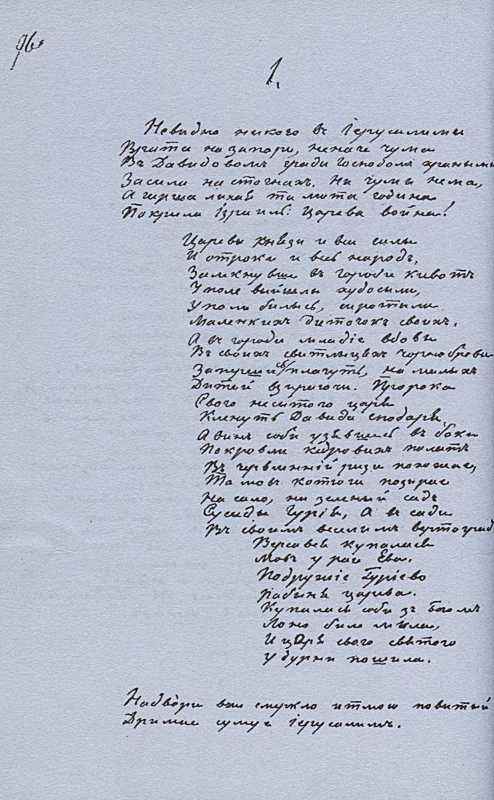 96
1.
Невидно никого въ Іерусалими
Врата на запори, неначе чума
Въ Давидовомъ гради Господомъ храными
Засила на стогнахъ. Ни чумы нема,
А гирша лихая та люта година
Покрила Ізраиль: Царева война!
Цареви князи и вси силы
И отроки и весь народъ,
Замкнувши въ городи кивотъ
У поле вийшлы худосыли,
У поли былысь, сиротыли
Маленкихъ диточокъ своихъ.
А въ городи младіе вдовы
Въ своихъ свитлыцяхъ чорноброви
Запершись плачуть, на малыхъ
Дитей взираючи. Пророка
Свого неситого царя
Кленуть Давида сподаря,
А винъ соби узявшысь въ боки
По кровли кедровихъ палатъ
Въ червленній ризи похожае,
Та мовъ котюга позирае
На сало, на зеленый садъ
Сусиды Гурія, А въ сади
Въ своимъ веселимъ вертогради
Версавія купалася
Мовъ у раи Ева.
Подружіе Гуріево
Рабыня царева.
Купалась соби зъ Богомъ
Лоно биле мыла,
И царя свого святого
У дурни пошила.
Надвори вже смеркло и тмою повитый
Дримае сумуе Іерусалимъ.